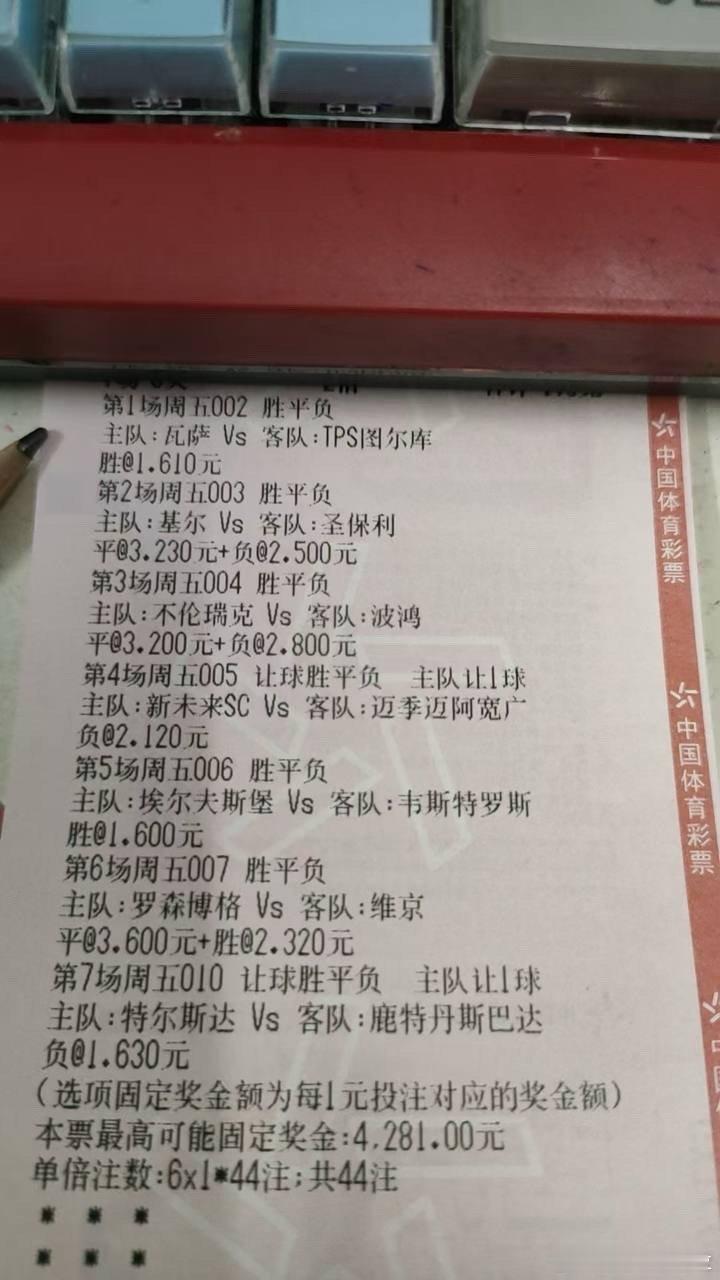 第1场周五002 胜平负
主队:瓦萨 Vs 客队:TPS图尔库
胜@1.610元
第2场周五003 胜平负
主队:基尔 Vs 客队:圣保利
平@3.230元+负@2.500元
第3场周五004 胜平负
主队:不伦瑞克 Vs 客队:波鸿
平@3.200元+负@2.800元
第4场周五005 让球胜平负 主队让1球
主队:新未来SC Vs 客队:迈季迈阿宽广
负@2.120元
第5场周五006 胜平负
主队:埃尔夫斯堡 Vs 客队:韦斯特罗斯
胜@1.600元
第6场周五007 胜平负
主队:罗森博格 Vs 客队:维京
平@3.600元+胜@2.320元
第7场周五010 让球胜平负 主队让1球
主队:特尔斯达 Vs 客队:鹿特丹斯巴达
负@1.630元
(选项固定奖金额为每1元投注对应的奖金额)
本票最高可能固定奖金:4,281.00元
单倍注数:6x1*44注;共44注
* * *
* * *
中国体育彩票
中国体育彩票